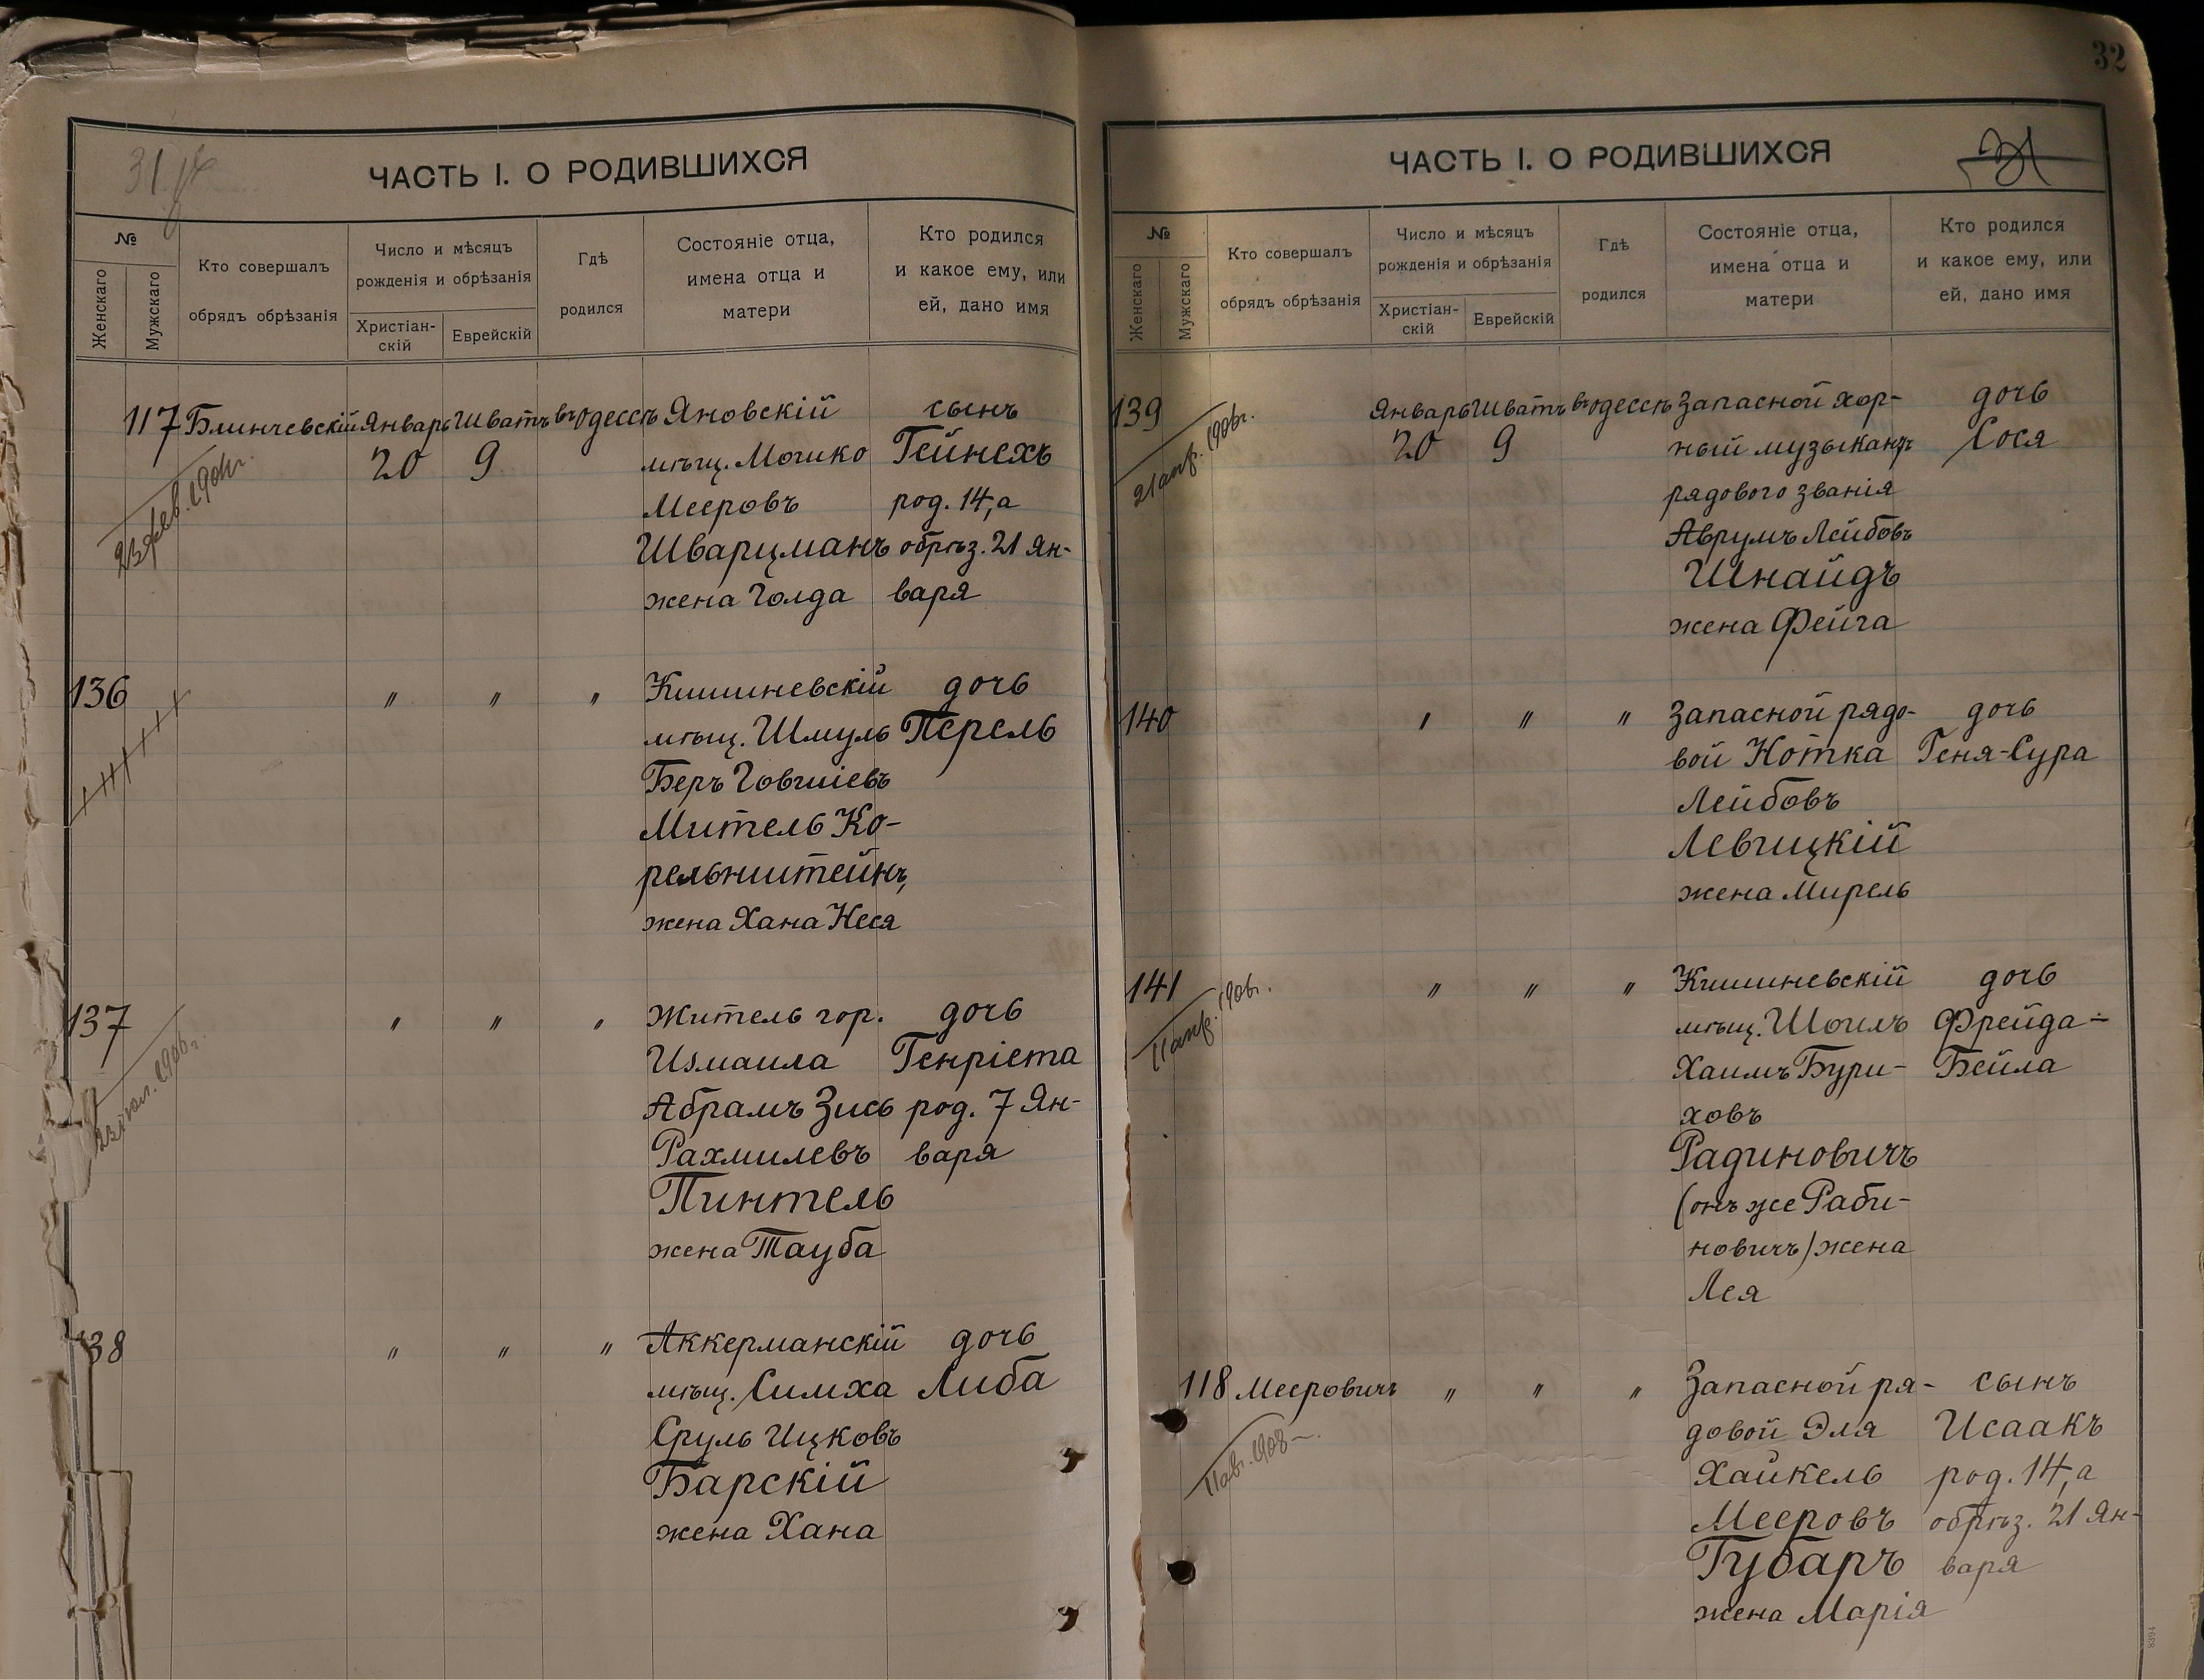 31
ЧАСТЬ I. О РОДИВШИХСЯ
№
Женскаго
Мужскаго
Кто совершалъ
обрядъ обрѣзанія
Число и мѣсяцъ
рожденія и обрѣзанія
Христіан-
скій
Еврейскій
Гдѣ
родился
Состояніе отца,
имена отца и
матери
Кто родился
и какое ему, или
ей, дано имя
117 Блинчевскій Январь Шватъ въ Одессѣ Яновскій сынъ
20 9 мѣщ. Мошко Гейнехъ
Мееровъ род. 14, а
Шварцманъ обрѣз. 21 Ян-
жена Голда варя
136 " " " Кишиневскій дочь
мѣщ. Шмуль Перель
Беръ Говшіевъ
Митель Ко-
рельнштейнъ,
жена Хана Неся
137 " " " Житель гор. дочь
Измаила Генріета
Абрамъ Зись род. 7 Ян-
Рахмилевъ варя
Пинтель
жена Тауба
138 " " " Аккерманскій дочь
мѣщ. Симха Либа
Сруль Ицковъ
Барскій
жена Хана
32
ЧАСТЬ I. О РОДИВШИХСЯ
№
Женскаго
Мужскаго
Кто совершалъ
обрядъ обрѣзанія
Число и мѣсяцъ
рожденія и обрѣзанія
Христіан-
скій
Еврейскій
Гдѣ
родился
Состояніе отца,
имена отца и
матери
Кто родился
и какое ему, или
ей, дано имя
139 Январь Шватъ въ Одессѣ Запасной хор- дочь
21 апр. 1906г.
20 9 ный музыкантъ Сося
рядового званія
Аврумъ Лейбовъ
Шнайдъ
жена Фейга
140 " " " Запасной рядо- дочь
вой Нотка Геня-Сура
Лейбовъ
Левчицкій
жена Мирель
141 " " " Кишиневскій дочь
11 апр. 1906г.
мѣщ. Шоилъ Фрейда-
Хаимъ Бури- Бейла
ховъ
Радиновичъ
(онъ же Раби-
новичъ) жена
Лея
118 Мееровичъ " " " Запасной ря- сынъ
11 авг. 1908
довой Эля Исаакъ
Хайкель род. 14, а
Мееровъ обрѣз. 21 Ян-
Губаръ варя
жена Марія
8394